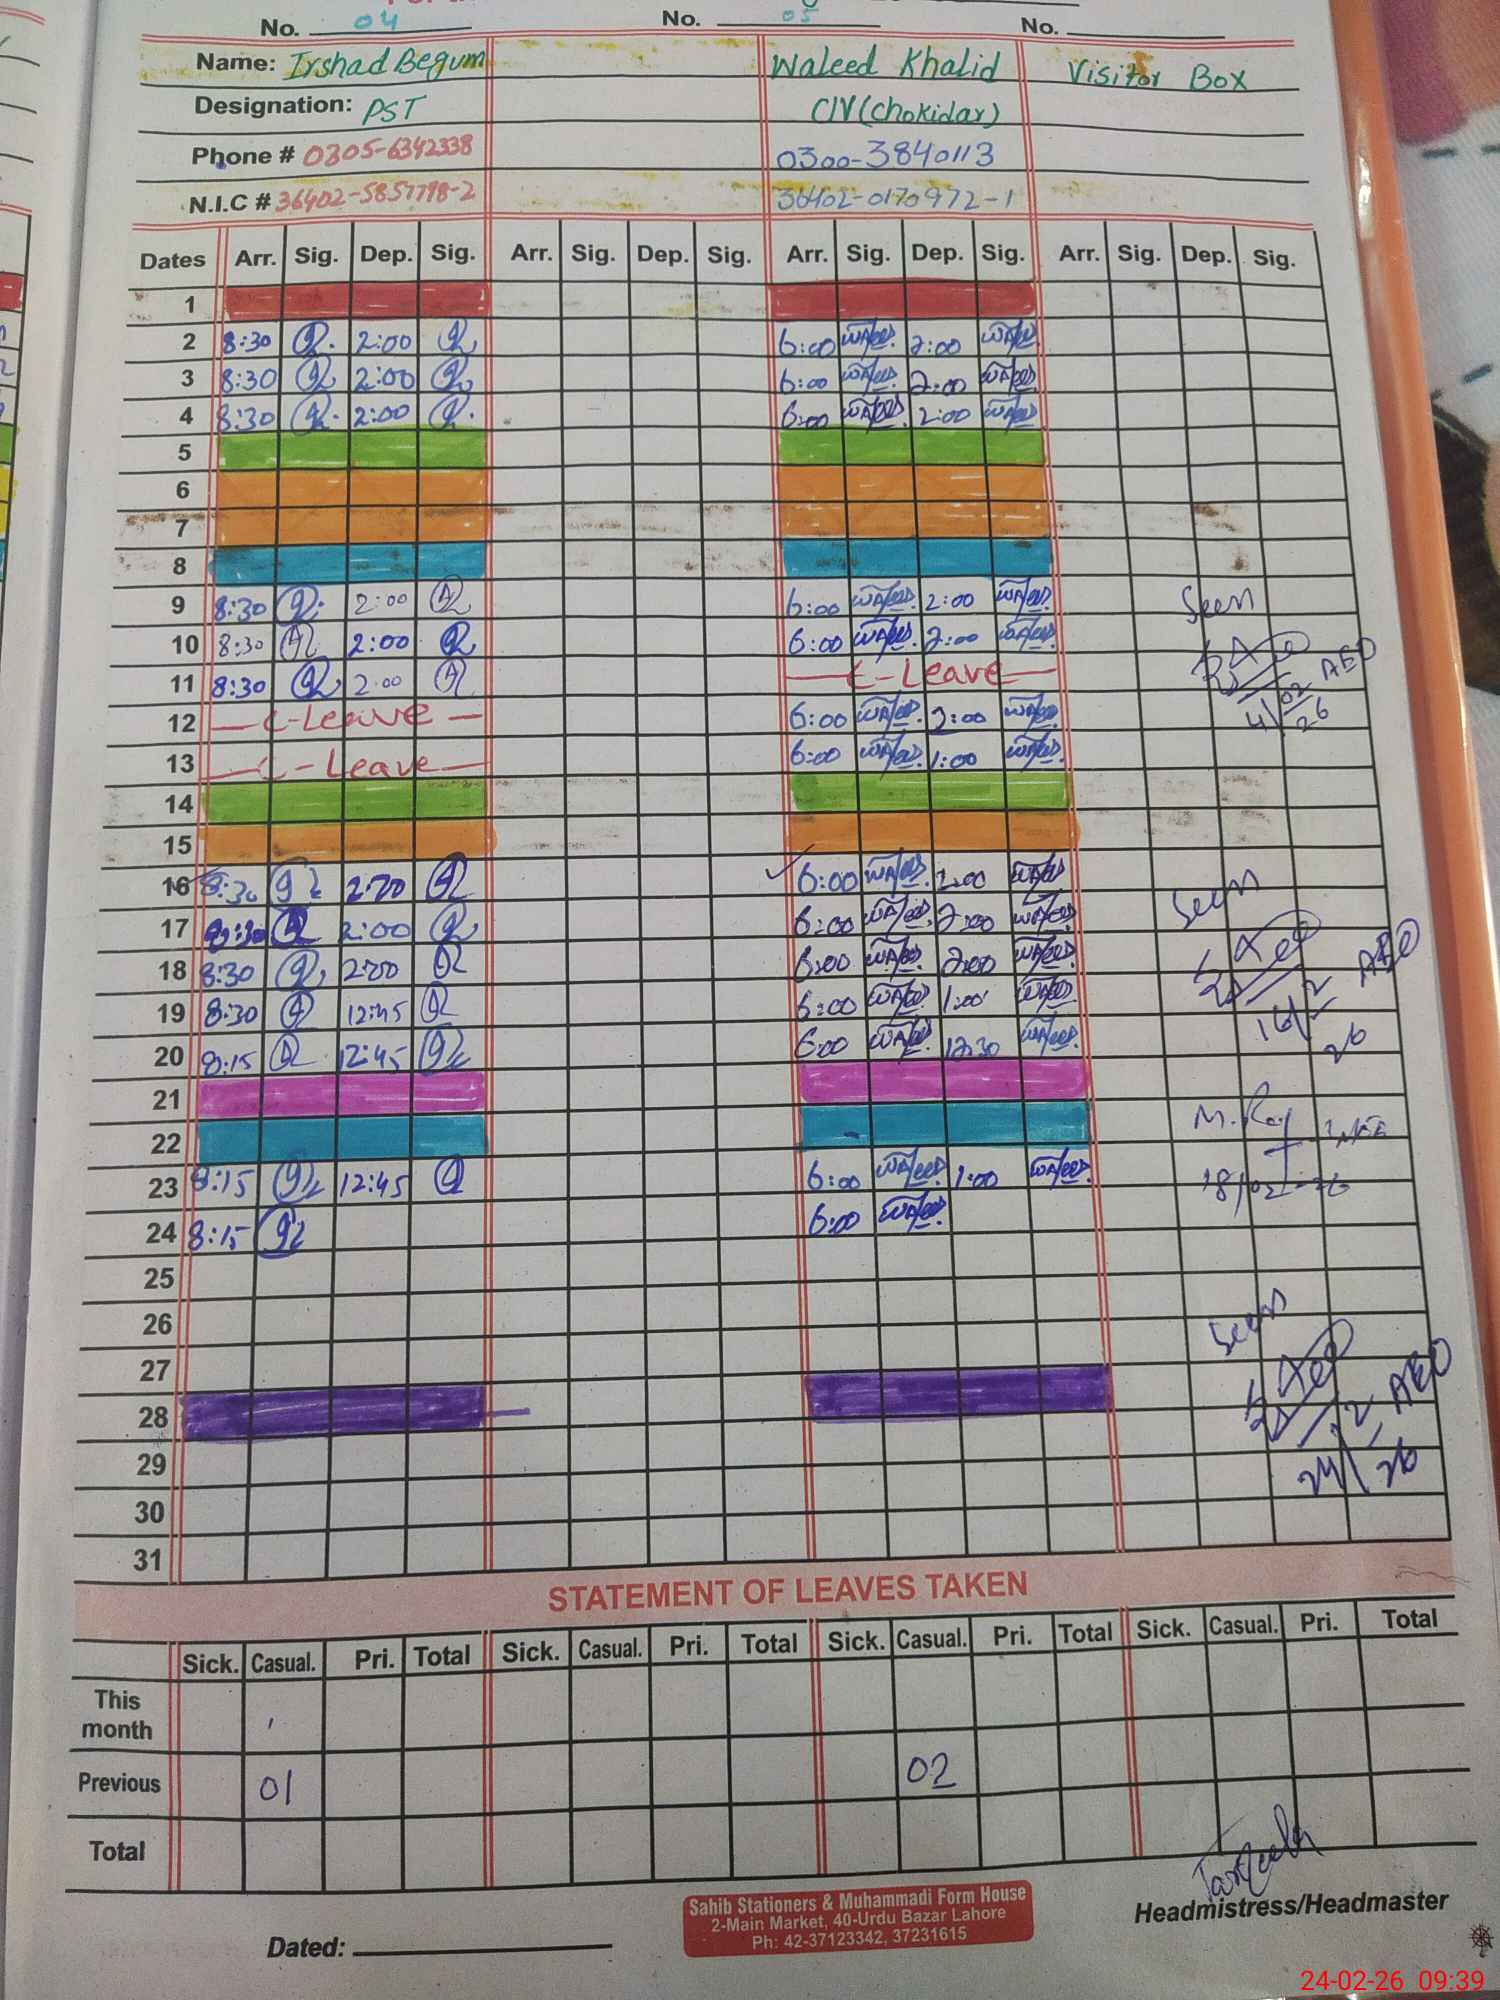 No. 04 No. 05 No.
Name: Irshad Begum Waleed Khalid Visitor Box
Designation: PST C/V (Chokidar)
Phone # 0305-6342338 0300-3840113
N.I.C # 36402-5857798-2 36402-0170972-1
Dates Arr. Sig. Dep. Sig. Arr. Sig. Dep. Sig. Arr. Sig. Dep. Sig. Arr. Sig. Dep. Sig.
1
2 8:30 2:00 6:00 Waleed 2:00 Waleed
3 8:30 2:00 6:00 Waleed 2:00 Waleed
4 8:30 2:00 6:00 Waleed 2:00 Waleed
5
6
7
8
9 8:30 2:00 6:00 Waleed 2:00 Waleed Seen
10 8:30 2:00 6:00 Waleed 2:00 Waleed
11 8:30 2:00 C-Leave AEO
12 C-Leave 6:00 Waleed 2:00 Waleed 4/02/26
13 C-Leave 6:00 Waleed 1:00 Waleed
14
15
16 8:30 2:00 6:00 Waleed 2:00 Waleed Seen
17 8:30 2:00 6:00 Waleed 2:00 Waleed
18 8:30 2:00 6:00 Waleed 2:00 Waleed AEO
19 8:30 12:45 6:00 Waleed 1:00 Waleed 16/2
20 8:15 12:45 6:00 Waleed 12:30 Waleed 26
21
22
23 8:15 12:45 6:00 Waleed 1:00 Waleed 18/02-26
24 8:15 6:00 Waleed
25
26 Seen
27
28 AEO
29 24/2/26
30
31
STATEMENT OF LEAVES TAKEN
Sick. Casual. Pri. Total Sick. Casual. Pri. Total Sick. Casual. Pri. Total Sick. Casual. Pri. Total
This month
Previous 01 02
Total
Headmistress/Headmaster
Sahib Stationers & Muhammadi Form House
2-Main Market, 40-Urdu Bazar Lahore
Ph: 42-37123342, 37231615
Dated:
24-02-26 09:39